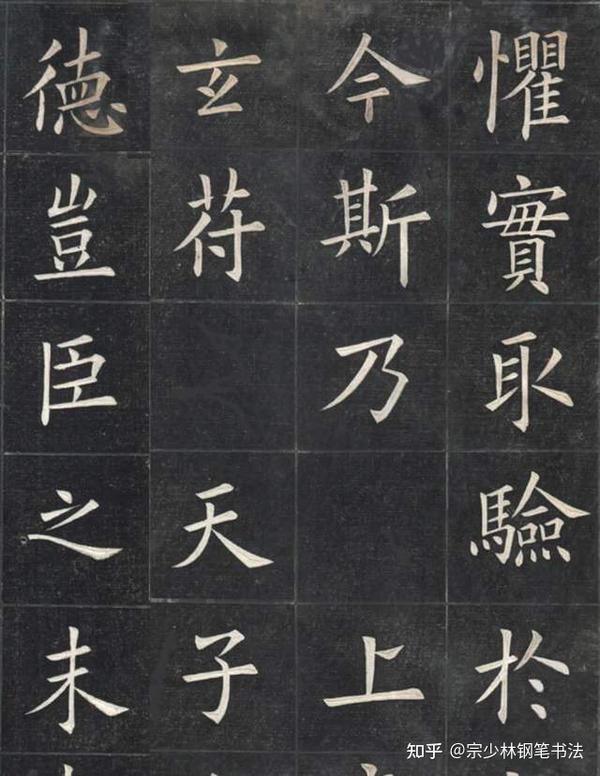 懼實取驗扵
今斯乃上
玄苻天子
德豈臣之末
知乎 @宗少林钢笔书法